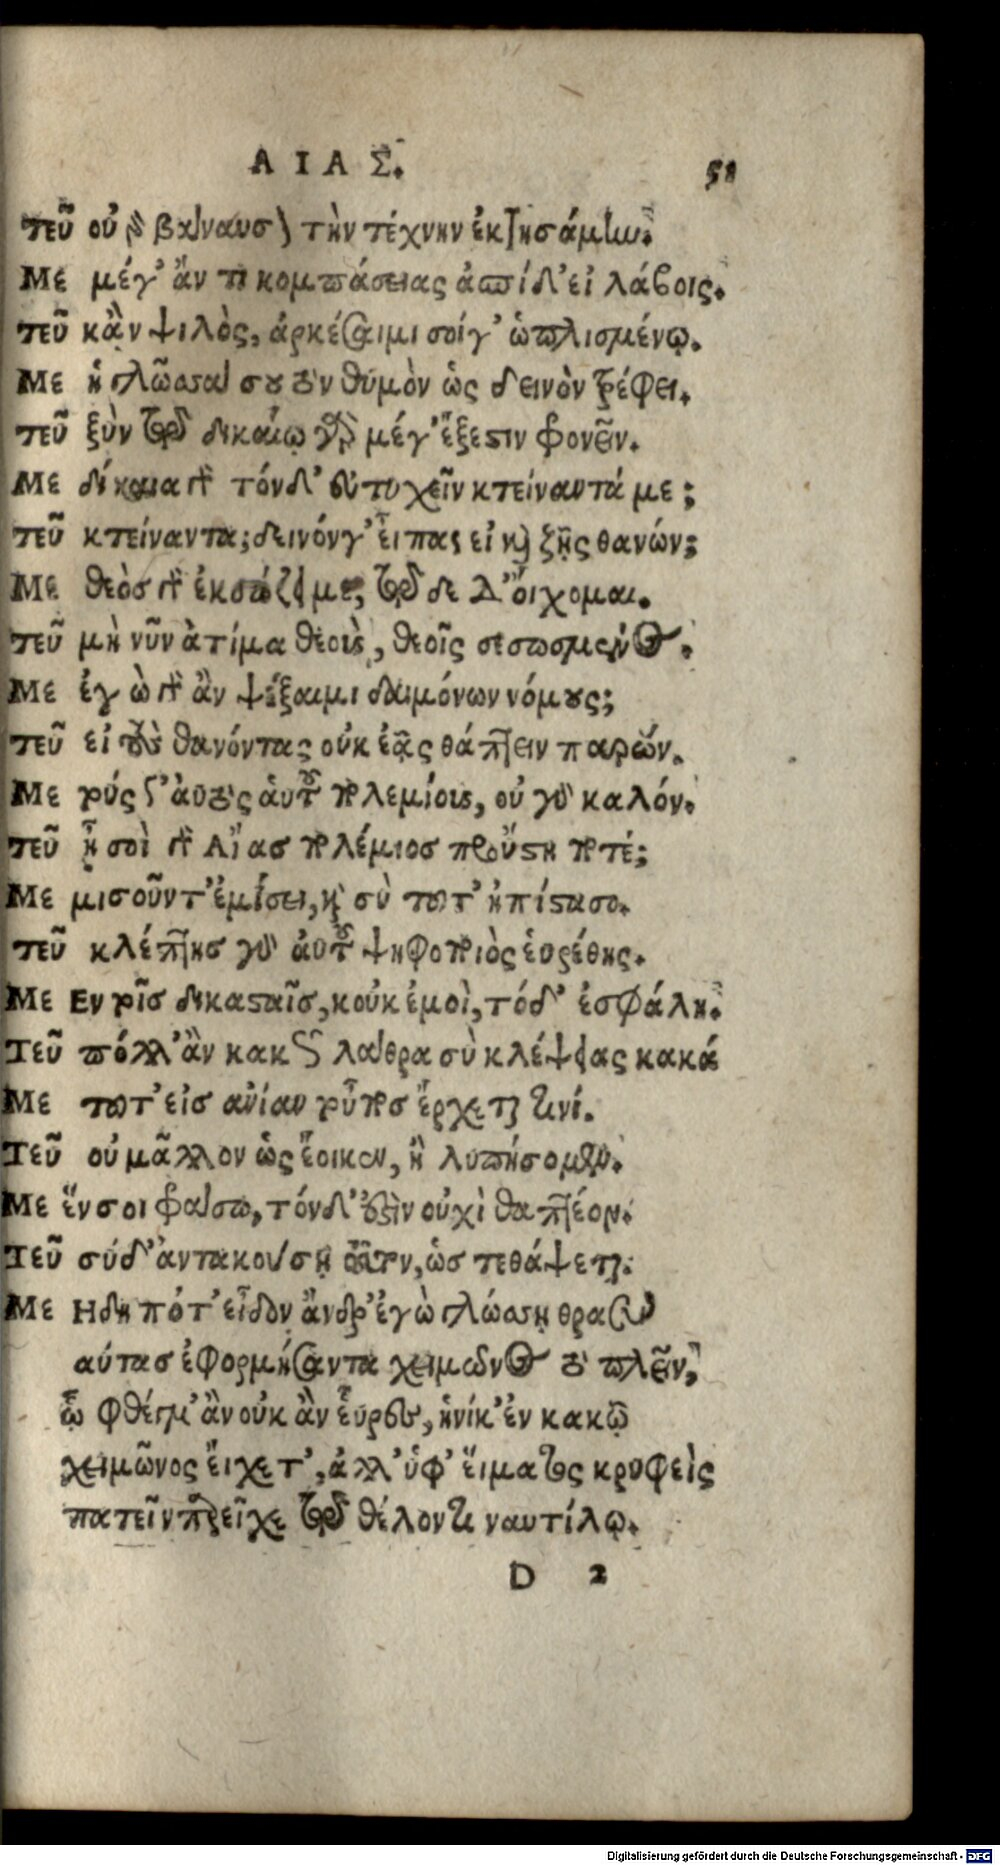 ΑΙΑΣ. 58
τεῦ οὐ γὸ βάναυσον τὴν τέχνην ἐκτησάμην.
Με μέγ' ἄν τι κομπάσειας ἀσπίδ' εἰ λάβοις.
τεῦ κἂν ψιλὸς, ἀρκέσαιμι σοίγ' ὡπλισμένῳ.
Με ἡ γλῶσσα σου τὸν θυμὸν ὡς δεινὸν τρέφει.
τεῦ ξὺν τῷ δικαίῳ γὰρ μέγ' ἔξεστιν φρονεῖν.
Με δίκαια γὰρ τόνδ' εὐτυχεῖν κτείναντά με;
τεῦ κτείναντα; δεινόνγ' εἶπας εἰ καὶ ζῇς θανών;
Με θεὸς γὰρ ἐκσώζει με, τῷδε δ' οἴχομαι.
τεῦ μὴ νῦν ἀτίμα θεοὺς, θεοῖς σεσωσμένος.
Με ἐγὼ γὰρ ἂν ψέξαιμι δαιμόνων νόμους;
τεῦ εἰ τοὺς θανόντας οὐκ ἐᾷς θάπτειν παρών.
Με τούς γ' αὐτὸς αὑτοῦ πολεμίους, οὐ γὰρ καλόν.
τεῦ ἦ σοὶ γὰρ Αἴας πολέμιος προὔστη ποτέ;
Με μισοῦντ' ἐμίσει, καὶ σὺ τοῦτ' ἠπίστασο.
τεῦ κλέπτης γὰρ αὐτοῦ ψηφοποιὸς εὑρέθης.
Με Εν τοῖς δικασταῖς, κοὐκ ἐμοὶ, τόδ' ἐσφάλη.
Τεῦ πόλλ' ἂν κακῶς λάθρα σὺ κλέψειας κακά
Με τοῦτ' εἰς ἀνίαν τοὖπος ἔρχεται τινί.
Τεῦ οὐ μᾶλλον ὡς ἔοικεν, ἢ λυπήσομεν.
Με ἕν σοι φράσω, τόνδ' ἐστὶν οὐχὶ θαπτέον.
Τεῦ σύ δ' ἀντακούσῃ τοῦτον, ὡς τεθάψεται.
Με Ηδη πότ' εἶδον ἄνδρ' ἐγὼ γλώσσῃ θρασὺν
αύτας ἐφορμήσαντα χειμῶνος τὸ πλεῖν,
ᾧ φθέγμ' ἂν οὐκ ἂν εὗρες, ἡνίκ' ἐν κακῷ
χειμῶνος εἴχετ', ἀλλ' ὑφ' εἵματος κρυφεὶς
πατεῖν παρεῖχε τῷ θέλοντι ναυτίλῳ.
D 2
Digitalisierung gefördert durch die Deutsche Forschungsgemeinschaft - DFG